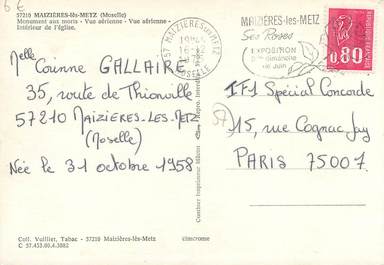 6 €
57210 MAIZIÈRES-lès-METZ (Moselle)
Monument aux morts - Vue aérienne - Vue aérienne -
Intérieur de l'église.
MAIZIÈRES-les-METZ
Ses Roses
EXPOSITION
dimanche
de Juin
0,80
57 MAIZIERES LES METZ
MOSELLE
Melle Corinne GALLAIRE
35, route de Thionville
57210 MAIZIERES-LES-METZ
(Moselle)
Née le 31 octobre 1958
TF1 Spécial Concorde
15, rue Cognac-Jay
PARIS 75007
57
Combier Imprimeur Mâcon
Coll. Vuillier, Tabac - 57210 Maizières-lès-Metz
C 57.433.00.4.3082
cimcrome